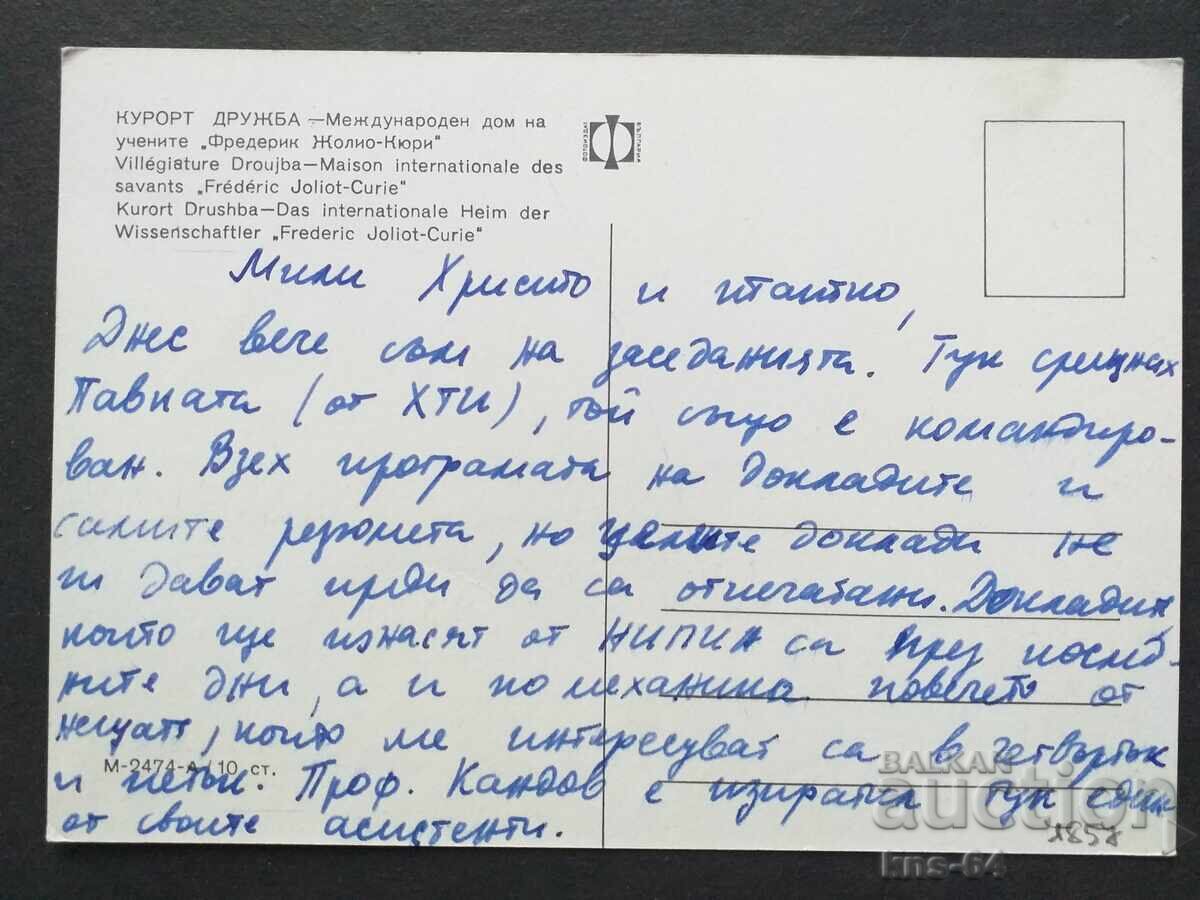 КУРОРТ ДРУЖБА — Международен дом на
учените „Фредерик Жолио-Кюри"
Villégiature Droujba—Maison internationale des
savants „Frédéric Joliot-Curie"
Kurort Drushba—Das internationale Heim der
Wissenschaftler „Frederic Joliot-Curie"
ФОТОИЗДАТ БЪЛГАРИЯ
Мили Христо и
Днес вече съм на заседанията. Тук срещнах
Павката (от ХТИ), той също е командиро-
ван. Взех програмата на докладите и
самите резюмета, но целите доклади не
ги дават преди да са отпечатани. Докладите,
които ще изнасят от НИПИ са през послед-
ните дни, а и по механика. Повечето от
нещата, които ме интересуват са в четвъртък
и петък. Проф. Кандов е изпратил тук един
от своите асистенти.
М-2474-А/10 ст.
BALKAN
auction
1858
kns-64